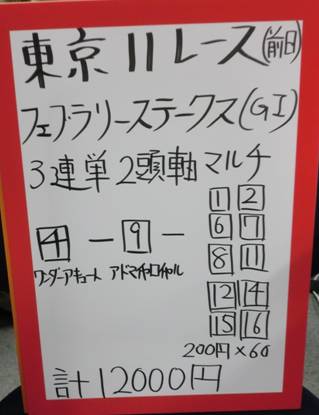 東京11レース(前日)
フェブラリーステークス(GI)
3連単2頭軸マルチ
4 - 9 -
ワンダーアキュート アドマイヤロイヤル
1 2
6 7
8 11
12 14
15 16
200円×60
計12000円